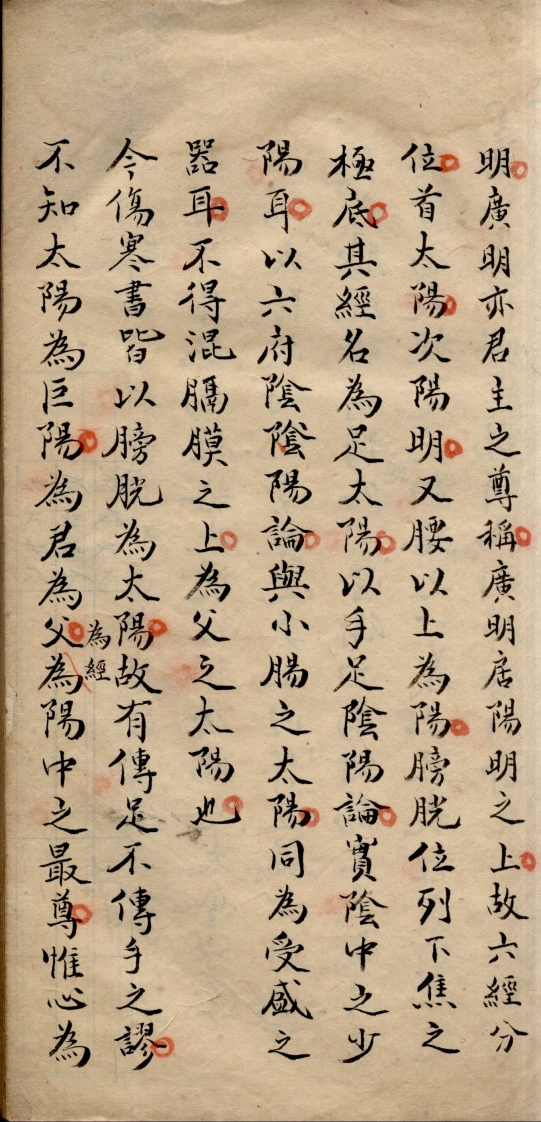 明廣明亦君主之尊稱廣明居陽明之上故六經分
位首太陽次陽明又腰以上為陽膀胱位列下焦之
極底其經名為足太陽以手足陰陽論實陰中之少
陽耳以六府陰陰陽論與小腸之太陽同為受盛之
器耳不得混膈膜之上為父之太陽也
今傷寒書皆以膀胱為太陽故有傳足不傳手之謬
為經
不知太陽為巨陽為君為父為陽中之最尊惟心為